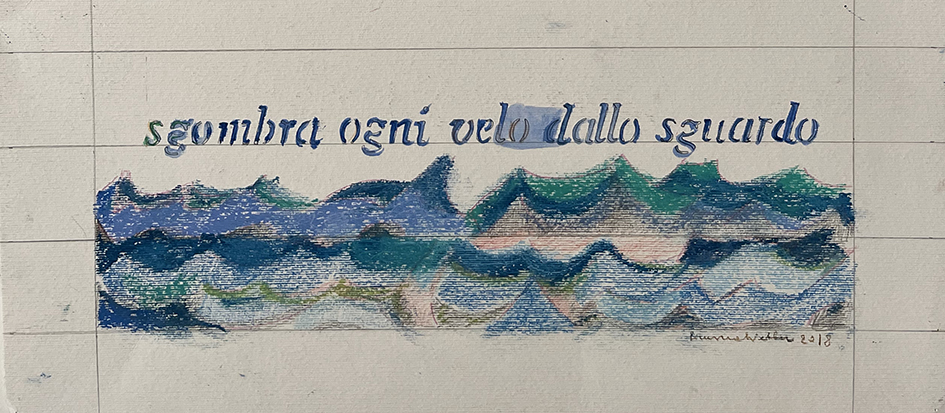 sgombra ogni velo dallo sguardo
2018